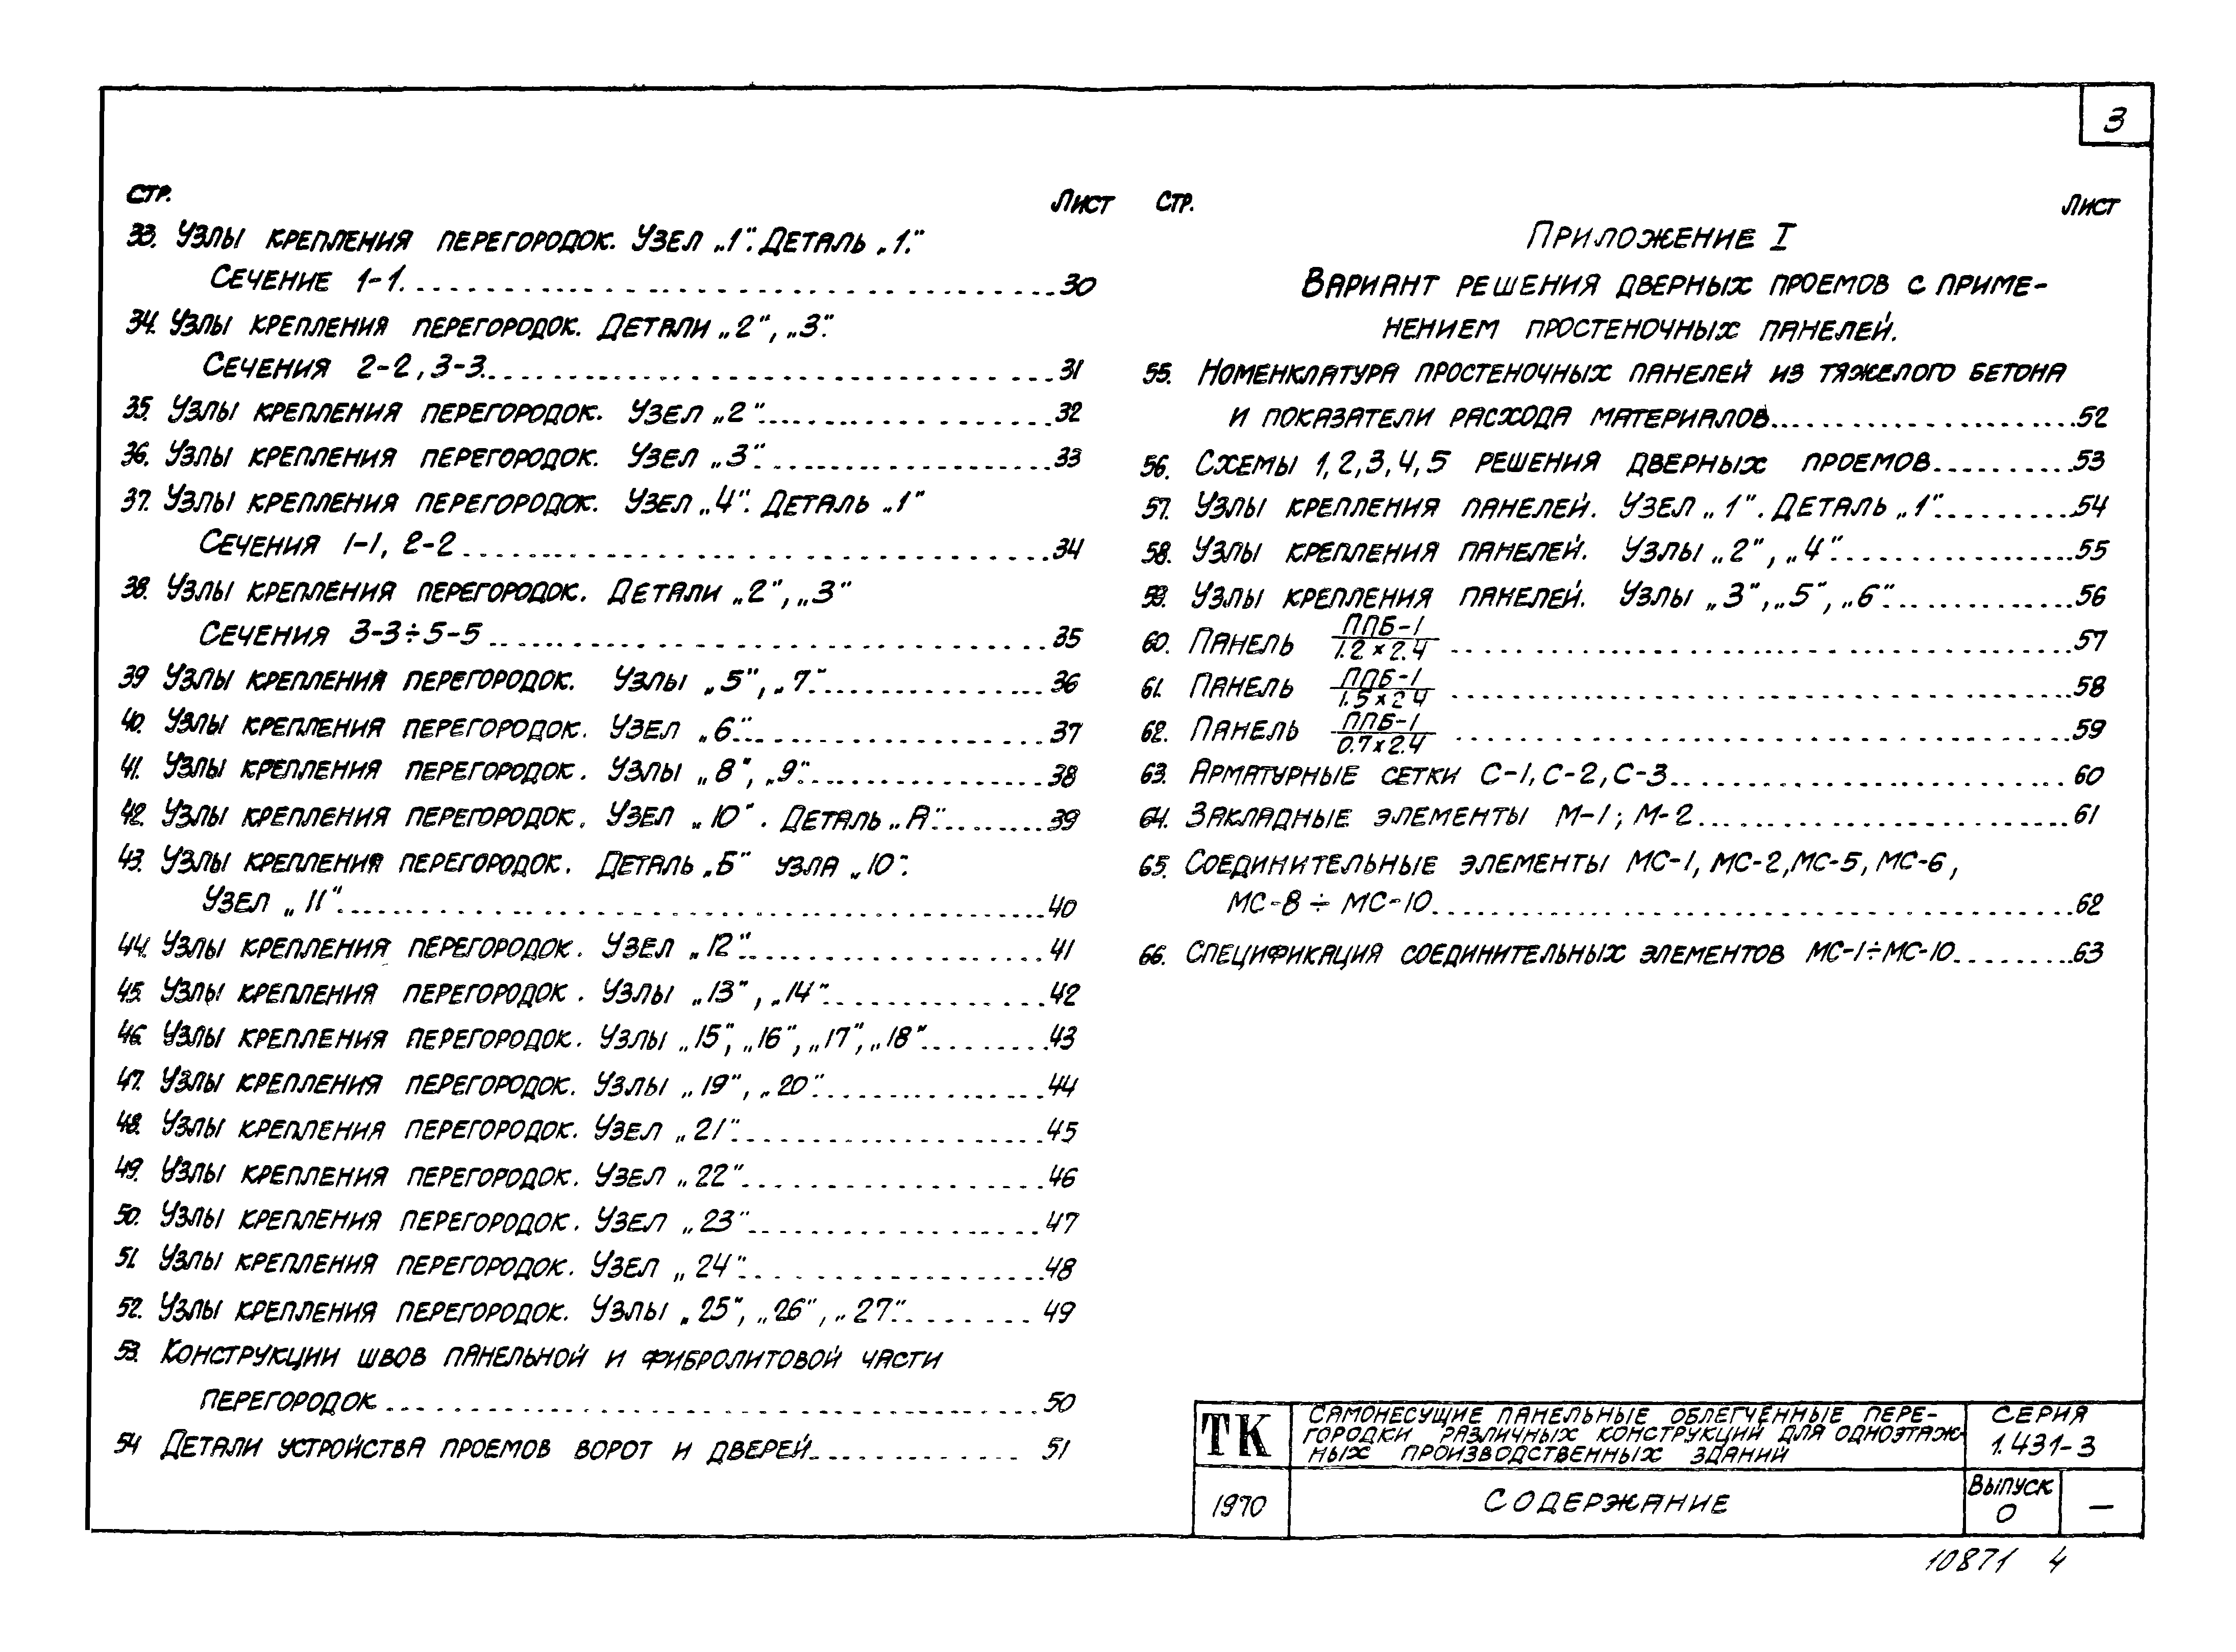 3
Стр. Лист
33. Узлы крепления перегородок. Узел „1". Деталь „1".
Сечение 1-1. 30
34. Узлы крепления перегородок. Детали „2", „3".
Сечения 2-2, 3-3. 31
35. Узлы крепления перегородок. Узел „2" 32
36. Узлы крепления перегородок. Узел „3" 33
37. Узлы крепления перегородок. Узел „4". Деталь „1"
Сечения 1-1, 2-2 34
38. Узлы крепления перегородок. Детали „2", „3"
Сечения 3-3÷5-5 35
39 Узлы крепления перегородок. Узлы „5", „7" 36
40. Узлы крепления перегородок. Узел „6" 37
41. Узлы крепления перегородок. Узлы „8", „9" 38
42. Узлы крепления перегородок. Узел „10". Деталь „А" 39
43. Узлы крепления перегородок. Деталь „Б" узла „10".
Узел „11" 40
44. Узлы крепления перегородок. Узел „12" 41
45. Узлы крепления перегородок. Узлы „13", „14" 42
46. Узлы крепления перегородок. Узлы „15", „16", „17", „18" 43
47. Узлы крепления перегородок. Узлы „19", „20" 44
48. Узлы крепления перегородок. Узел „21" 45
49. Узлы крепления перегородок. Узел „22" 46
50. Узлы крепления перегородок. Узел „23" 47
51 Узлы крепления перегородок. Узел „24" 48
52. Узлы крепления перегородок. Узлы „25", „26", „27" 49
53. Конструкции швов панельной и фибролитовой части
перегородок 50
54 Детали устройства проемов ворот и дверей 51
Стр. Лист
Приложение I
Вариант решения дверных проемов с приме-
нением простеночных панелей.
55. Номенклатура простеночных панелей из тяжелого бетона
и показатели расхода материалов 52
56. Схемы 1, 2, 3, 4, 5 решения дверных проемов 53
57. Узлы крепления панелей. Узел „1". Деталь „1" 54
58. Узлы крепления панелей. Узлы „2", „4" 55
59. Узлы крепления панелей. Узлы „3", „5", „6" 56
60. Панель ППБ-1/1.2×2.4 57
61. Панель ППБ-1/1.5×2.4 58
62. Панель ППБ-1/0.7×2.4 59
63. Арматурные сетки С-1, С-2, С-3 60
64. Закладные элементы М-1; М-2 61
65. Соединительные элементы МС-1, МС-2, МС-5, МС-6,
МС-8 ÷ МС-10 62
66. Спецификация соединительных элементов МС-1÷МС-10 63
ТК
Самонесущие панельные облегченные пере-
городки различных конструкций для одноэтаж-
ных производственных зданий
Серия
1.431-3
1970
Содержание
Выпуск
0
—
10871 4